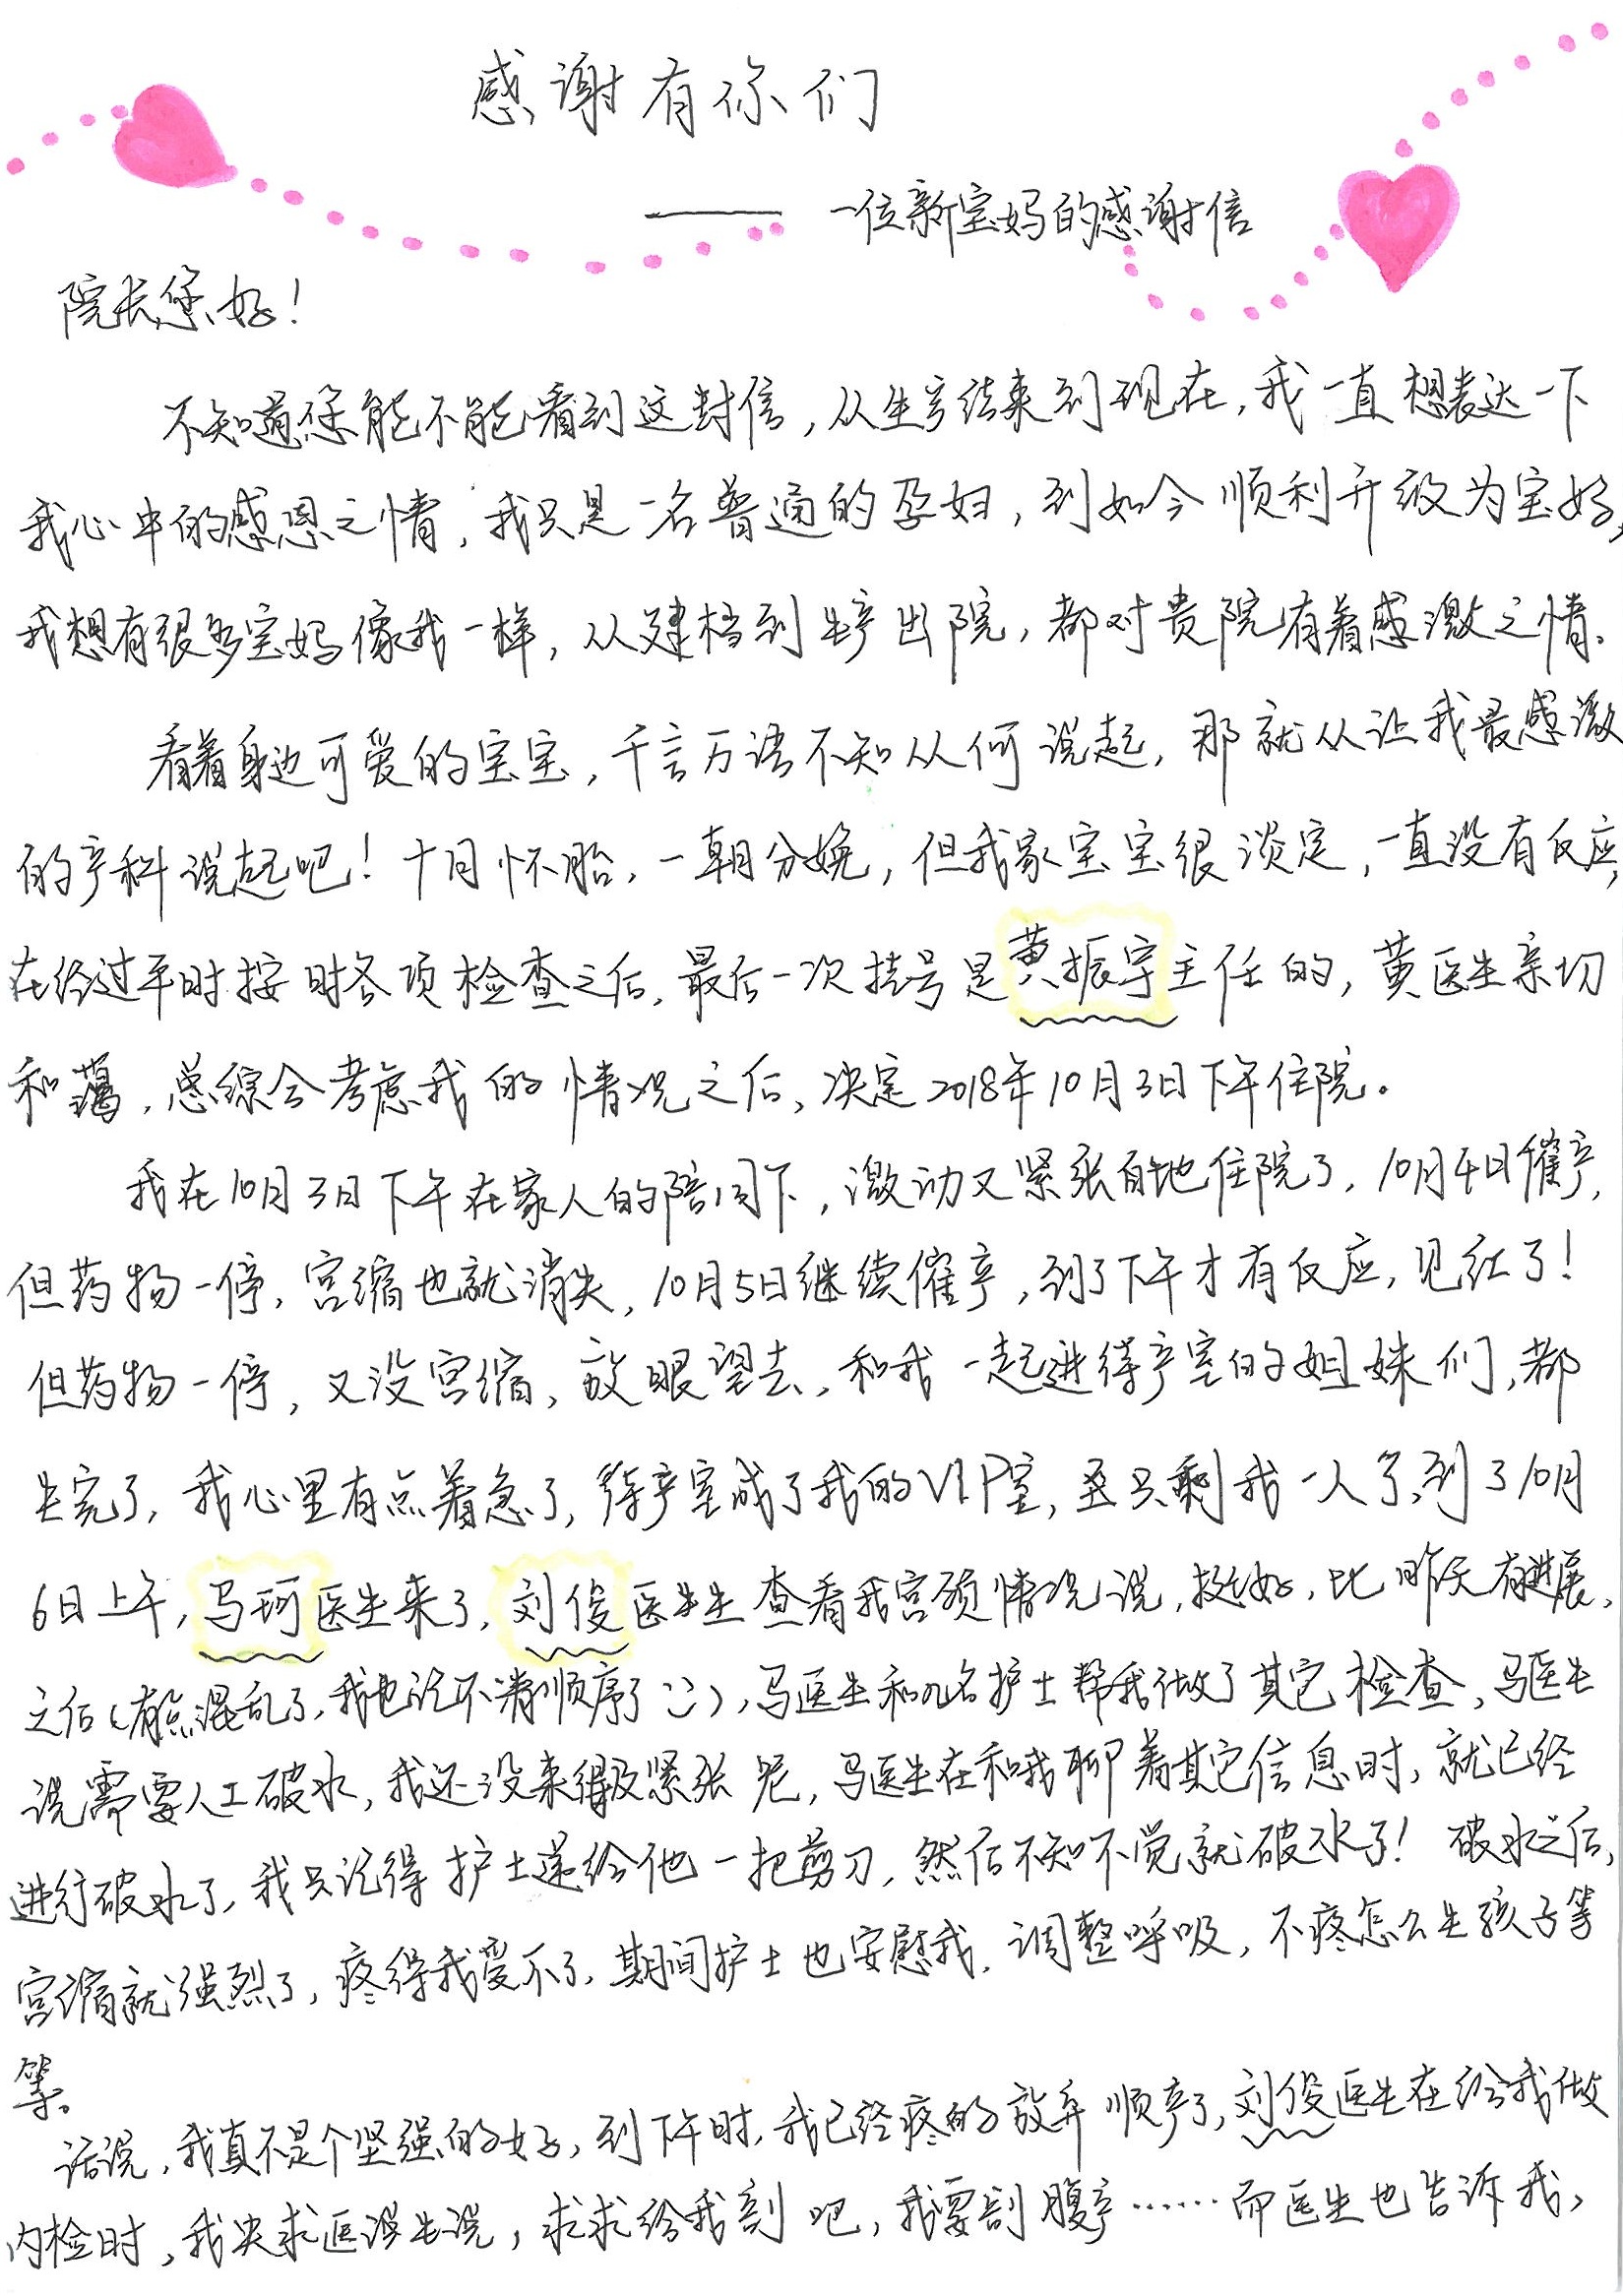 感谢有你们
—— 一位新宝妈的感谢信
院长您好！
不知道您能不能看到这封信，从生产结束到现在，我一直想表达一下
我心中的感恩之情，我只是一名普通的孕妇，到如今顺利升级为宝妈，
我想有很多宝妈像我一样，从建档到生产出院，都对贵院有着感激之情。
看着身边可爱的宝宝，千言万语不知从何说起，那就从让我最感激
的产科说起吧！十月怀胎，一朝分娩，但我家宝宝很淡定，一直没有反应，
在经过平时按时各项检查之后，最后一次挂号是黄振宇主任的，黄医生亲切
和蔼，总综合考虑我的情况之后，决定2018年10月3日下午住院。
我在10月3日下午在家人的陪同下，激动又紧张的地住院了，10月4日催产，
但药物一停，宫缩也就消失，10月5日继续催产，到了下午才有反应，见红了！
但药物一停，又没宫缩，放眼望去，和我一起进待产室的姐妹们，都
生完了，我心里有点着急了，待产室成了我的VIP室，至只剩我一人了，到了10月
6日上午，马珂医生来了，刘俊医生查看我宫颈情况说，挺好，比昨天有进展，
之后（有点混乱了，我也记不清顺序了），马医生和几名护士帮我做了其它检查，马医生
说需要人工破水，我还没来得及紧张呢，马医生在和我聊着其它信息时，就已经
进行破水了，我只记得护士递给他一把剪刀，然后不知不觉就破水了！破水之后，
宫缩就强烈了，疼得我受不了，期间护士也安慰我，调整呼吸，不疼怎么生孩子等
等。
话说，我真不是个坚强的妈，到下午时，我已经疼的放弃顺产了，刘俊医生在给我做
内检时，我央求医生说，求求给我剖吧，我要剖腹产……而医生也告诉我，